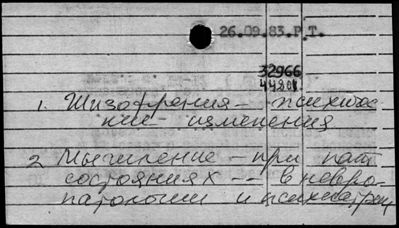 26.09.83.Р.Т.
32966
44801
1. Шизофрения — психичес
кие изменения
2 Мышление — при пат.
состояниях -- в невро-
патологии и психиатрии